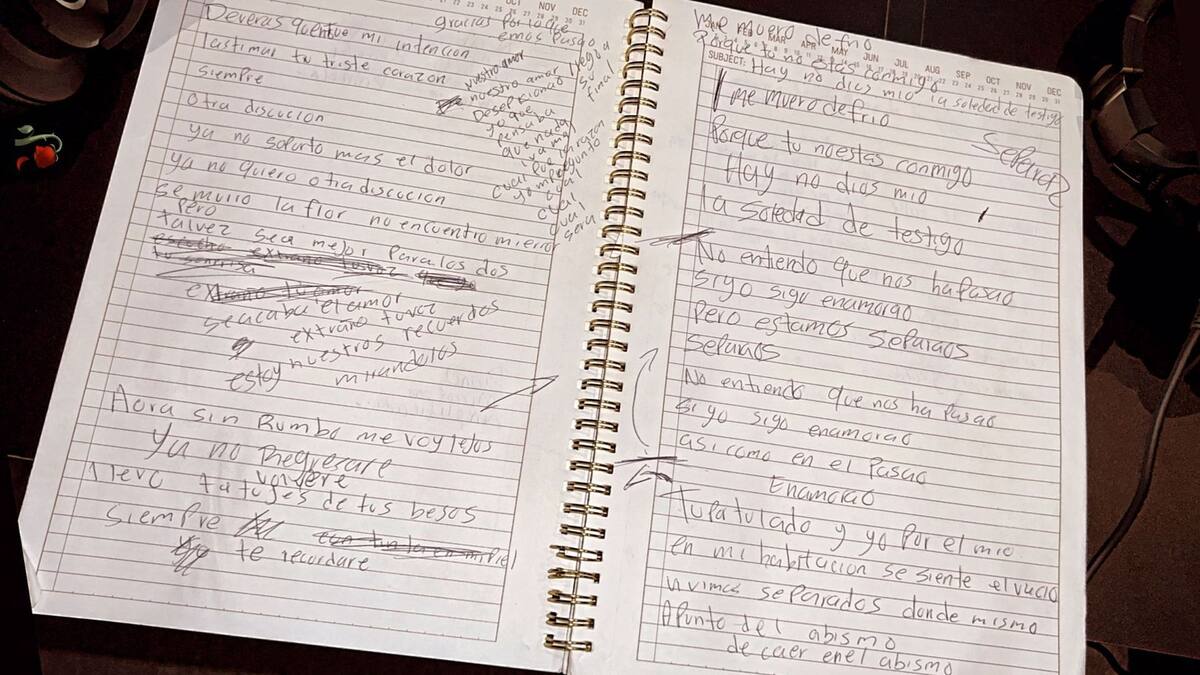 OCT NOV DEC
Deveras que fue mi intencion
lastimar tu triste corazon
siempre
Otra discucion
ya no soporto mas el dolor
ya no quiero otra discucion
se murio la flor no encuentro mi error
pero
talvez sea mejor para los dos
extraño tu voz
tu sonrisa
extraño tu amor
se acaba el amor
extraño tu voz
nuestros recuerdos
estoy mirandolos
Aora sin Rumbo me voy lejos
Ya no Regresare
volvere
llevo tatujes de tus besos
siempre
te recordare
gracias por lo que
emos pasao
nuestro amor
nuestro amor llego a
Desepcionao su
yo que final
pensaba
que nada
iva mal
cual fue la razon
yo me pregunto
cual
cual
cual
sera
Me muero de frio
Porque tu no estas conmigo
MAR APR MAY JUN JUL AUG SEP OCT NOV DEC
SUBJECT: Hay no
dios mio la soledad de testigo
me muero de frio
Separao
Porque tu no estas conmigo
Hay no dios mio
la soledad de testigo
No entiendo que nos ha pasao
si yo sigo enamorao
Pero estamos separaos
separaos
No entiendo que nos ha pasao
si yo sigo enamorao
asi como en el pasao
Enamorao
Tu pa tu lado y yo por el mio
en mi habitacion se siente el vacio
vivimos separados donde mismo
Apunto del abismo
de caer en el abismo